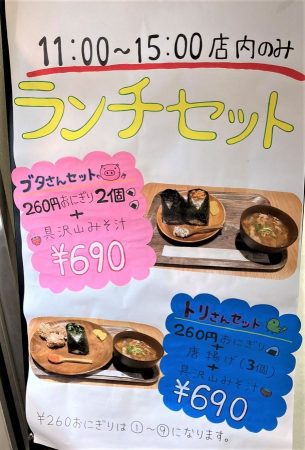 11:00～15:00 店内のみ
ランチセット
ブタさんセット
260円おにぎり2個
+
具沢山みそ汁
¥690
トリさんセット
260円おにぎり
+
唐揚げ(3個)
+
具沢山みそ汁
¥690
¥260おにぎりは①～⑨になります。